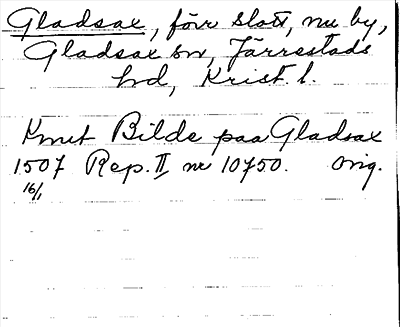 Gladsax, förr slott, nu by,
Gladsax sn, Järrestads
hd, Krist. l.
Knut Bilde paa Gladsax
1507 Rep. II nr 10750. Orig.
16/1